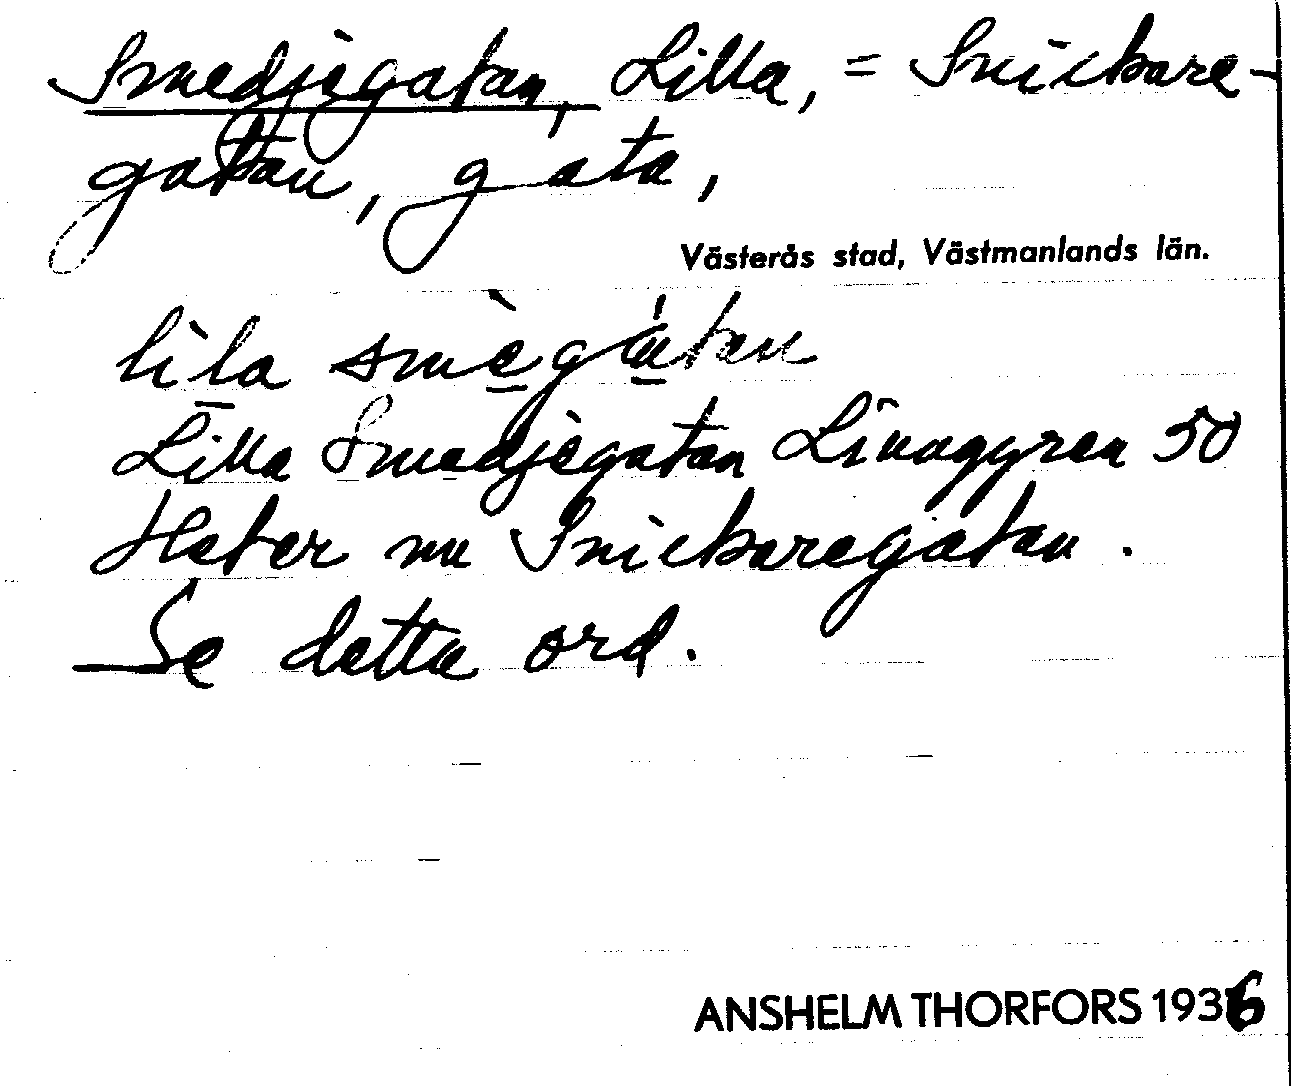 Smedjegatan, Lilla, = Snickare-
gatan, gata,
Västerås stad, Västmanlands län.
lìla smègátan
Lilla Smedjegatan Linaggren 50
Heter nu Snickaregatan.
Se detta ord.
ANSHELM THORFORS 1936